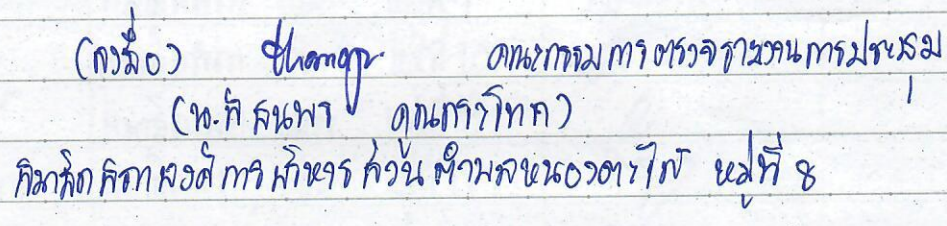 (ลงชื่อ) คณะกรรมการตรวจรายงานการประชุม
(น.ส ธนพร คูณกระโทก)
สมาชิกสภาองค์การบริหารส่วนตำบลหนองตะไก้ หมู่ที่ 8